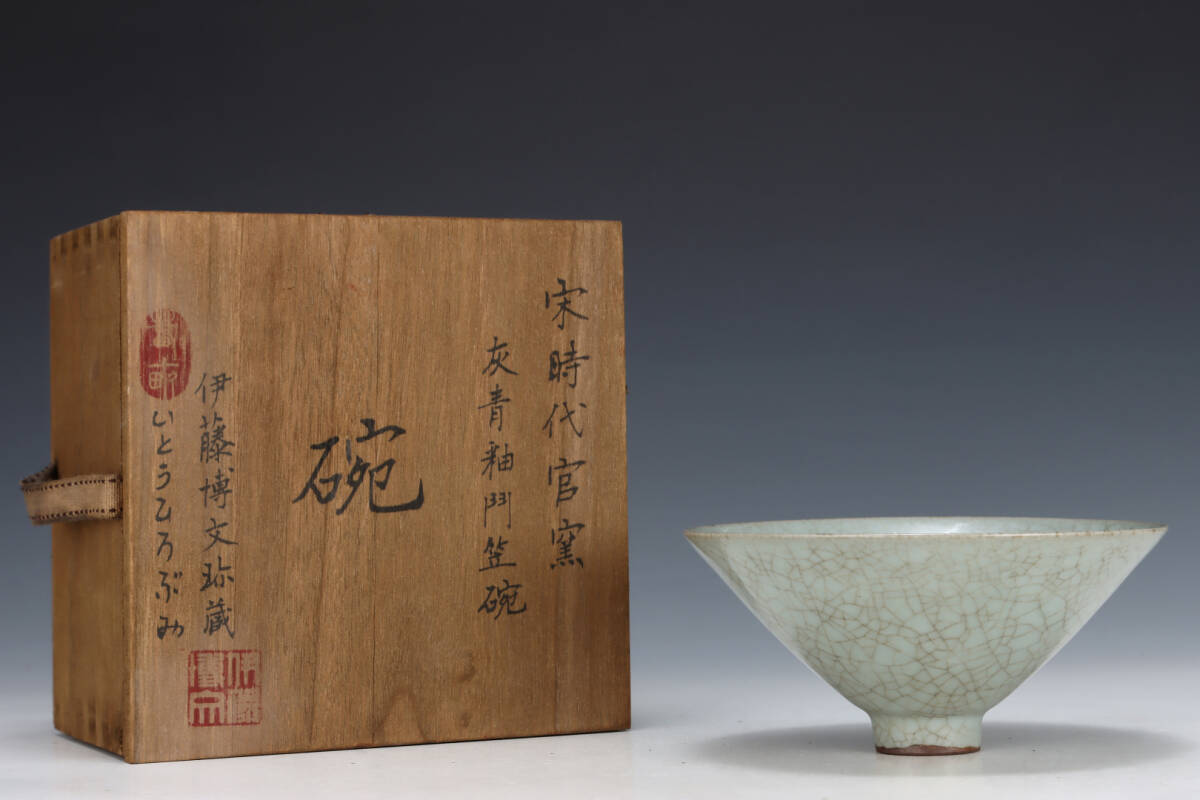 宋時代官窯
灰青釉鬥笠碗
碗
伊藤博文珎蔵
いとうひろぶみ
伊藤博文